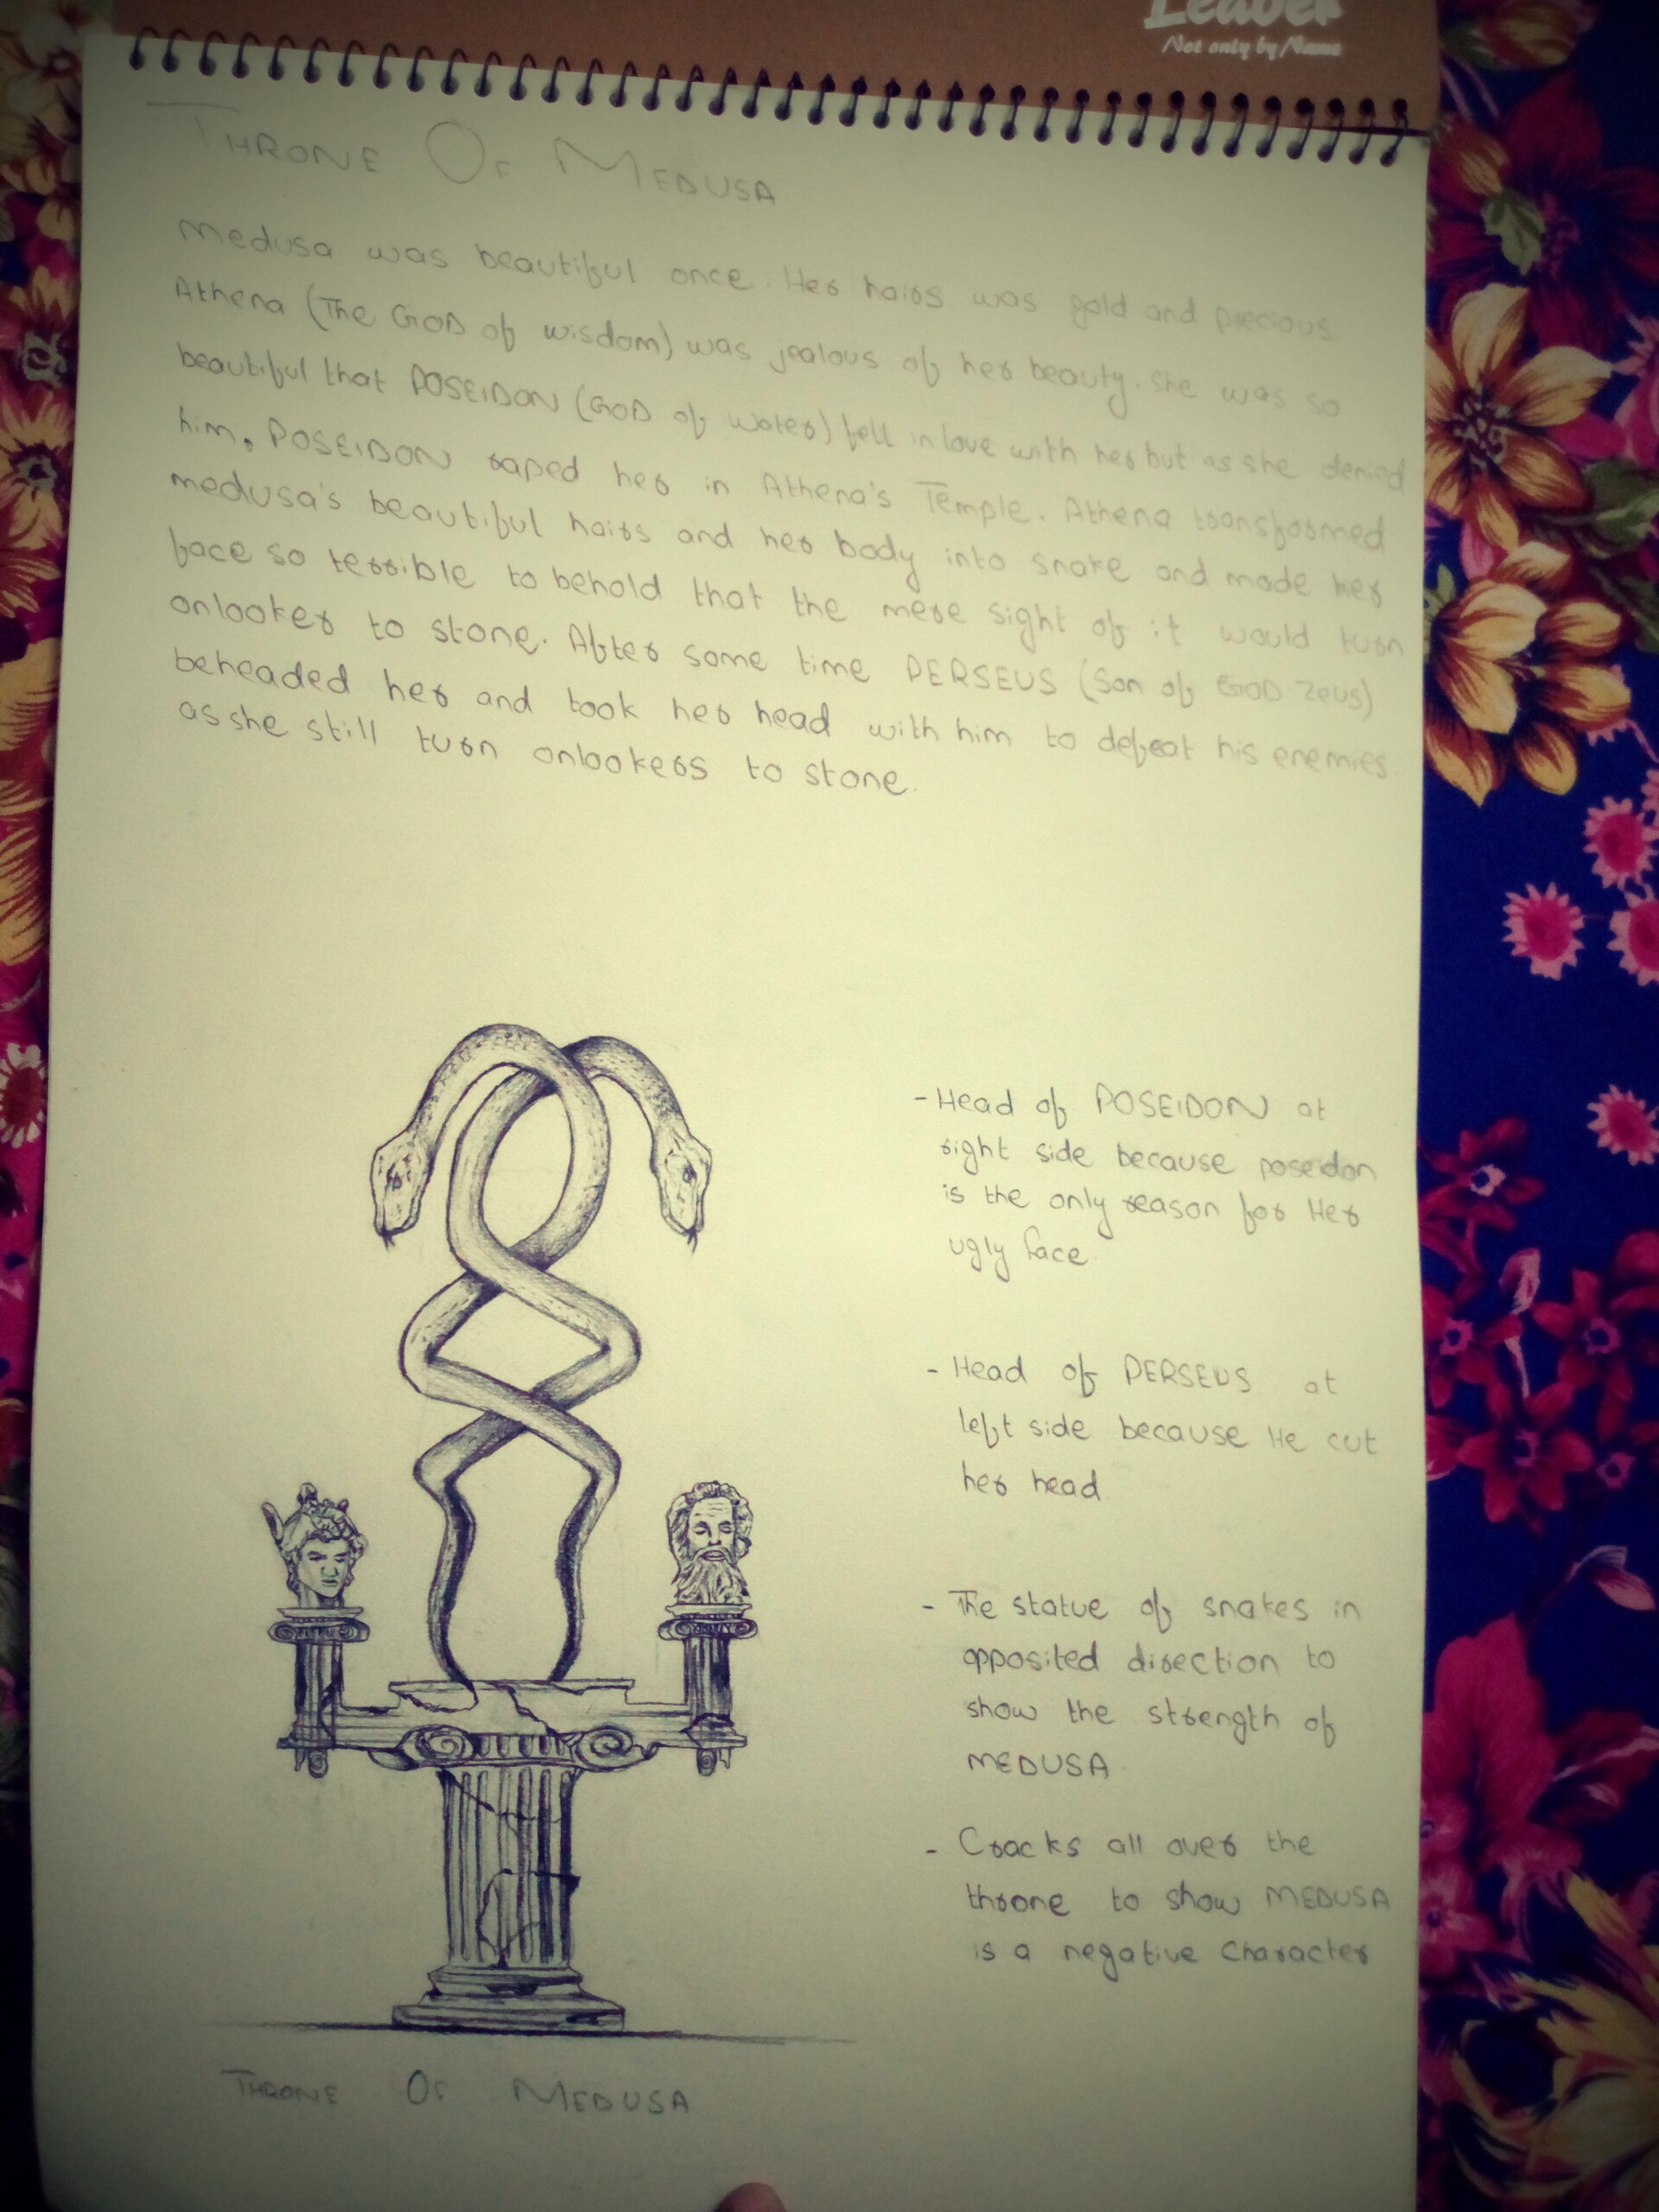 Leader
Not only by Name
THRONE OF MEDUSA
Medusa was beautiful once. Her hairs was gold and precious
Athena (The GOD of wisdom) was jealous of her beauty. She was so
beautiful that POSEIDON (GOD of water) fell in love with her but as she denied
him. POSEIDON raped her in Athena's Temple. Athena transformed
medusa's beautiful hairs and her body into snake and made her
face so terrible to behold that the mere sight of it would turn
onlooker to stone. After some time PERSEUS (Son of GOD Zeus)
beheaded her and took her head with him to defeat his enemies.
as she still turn onlookers to stone.
- Head of POSEIDON at
right side because poseidon
is the only reason for Her
ugly face.
- Head of PERSEUS at
left side because He cut
her head
- The statue of snakes in
opposited direction to
show the strength of
MEDUSA.
- Cracks all over the
throne to show MEDUSA
is a negative Character
THRONE OF MEDUSA